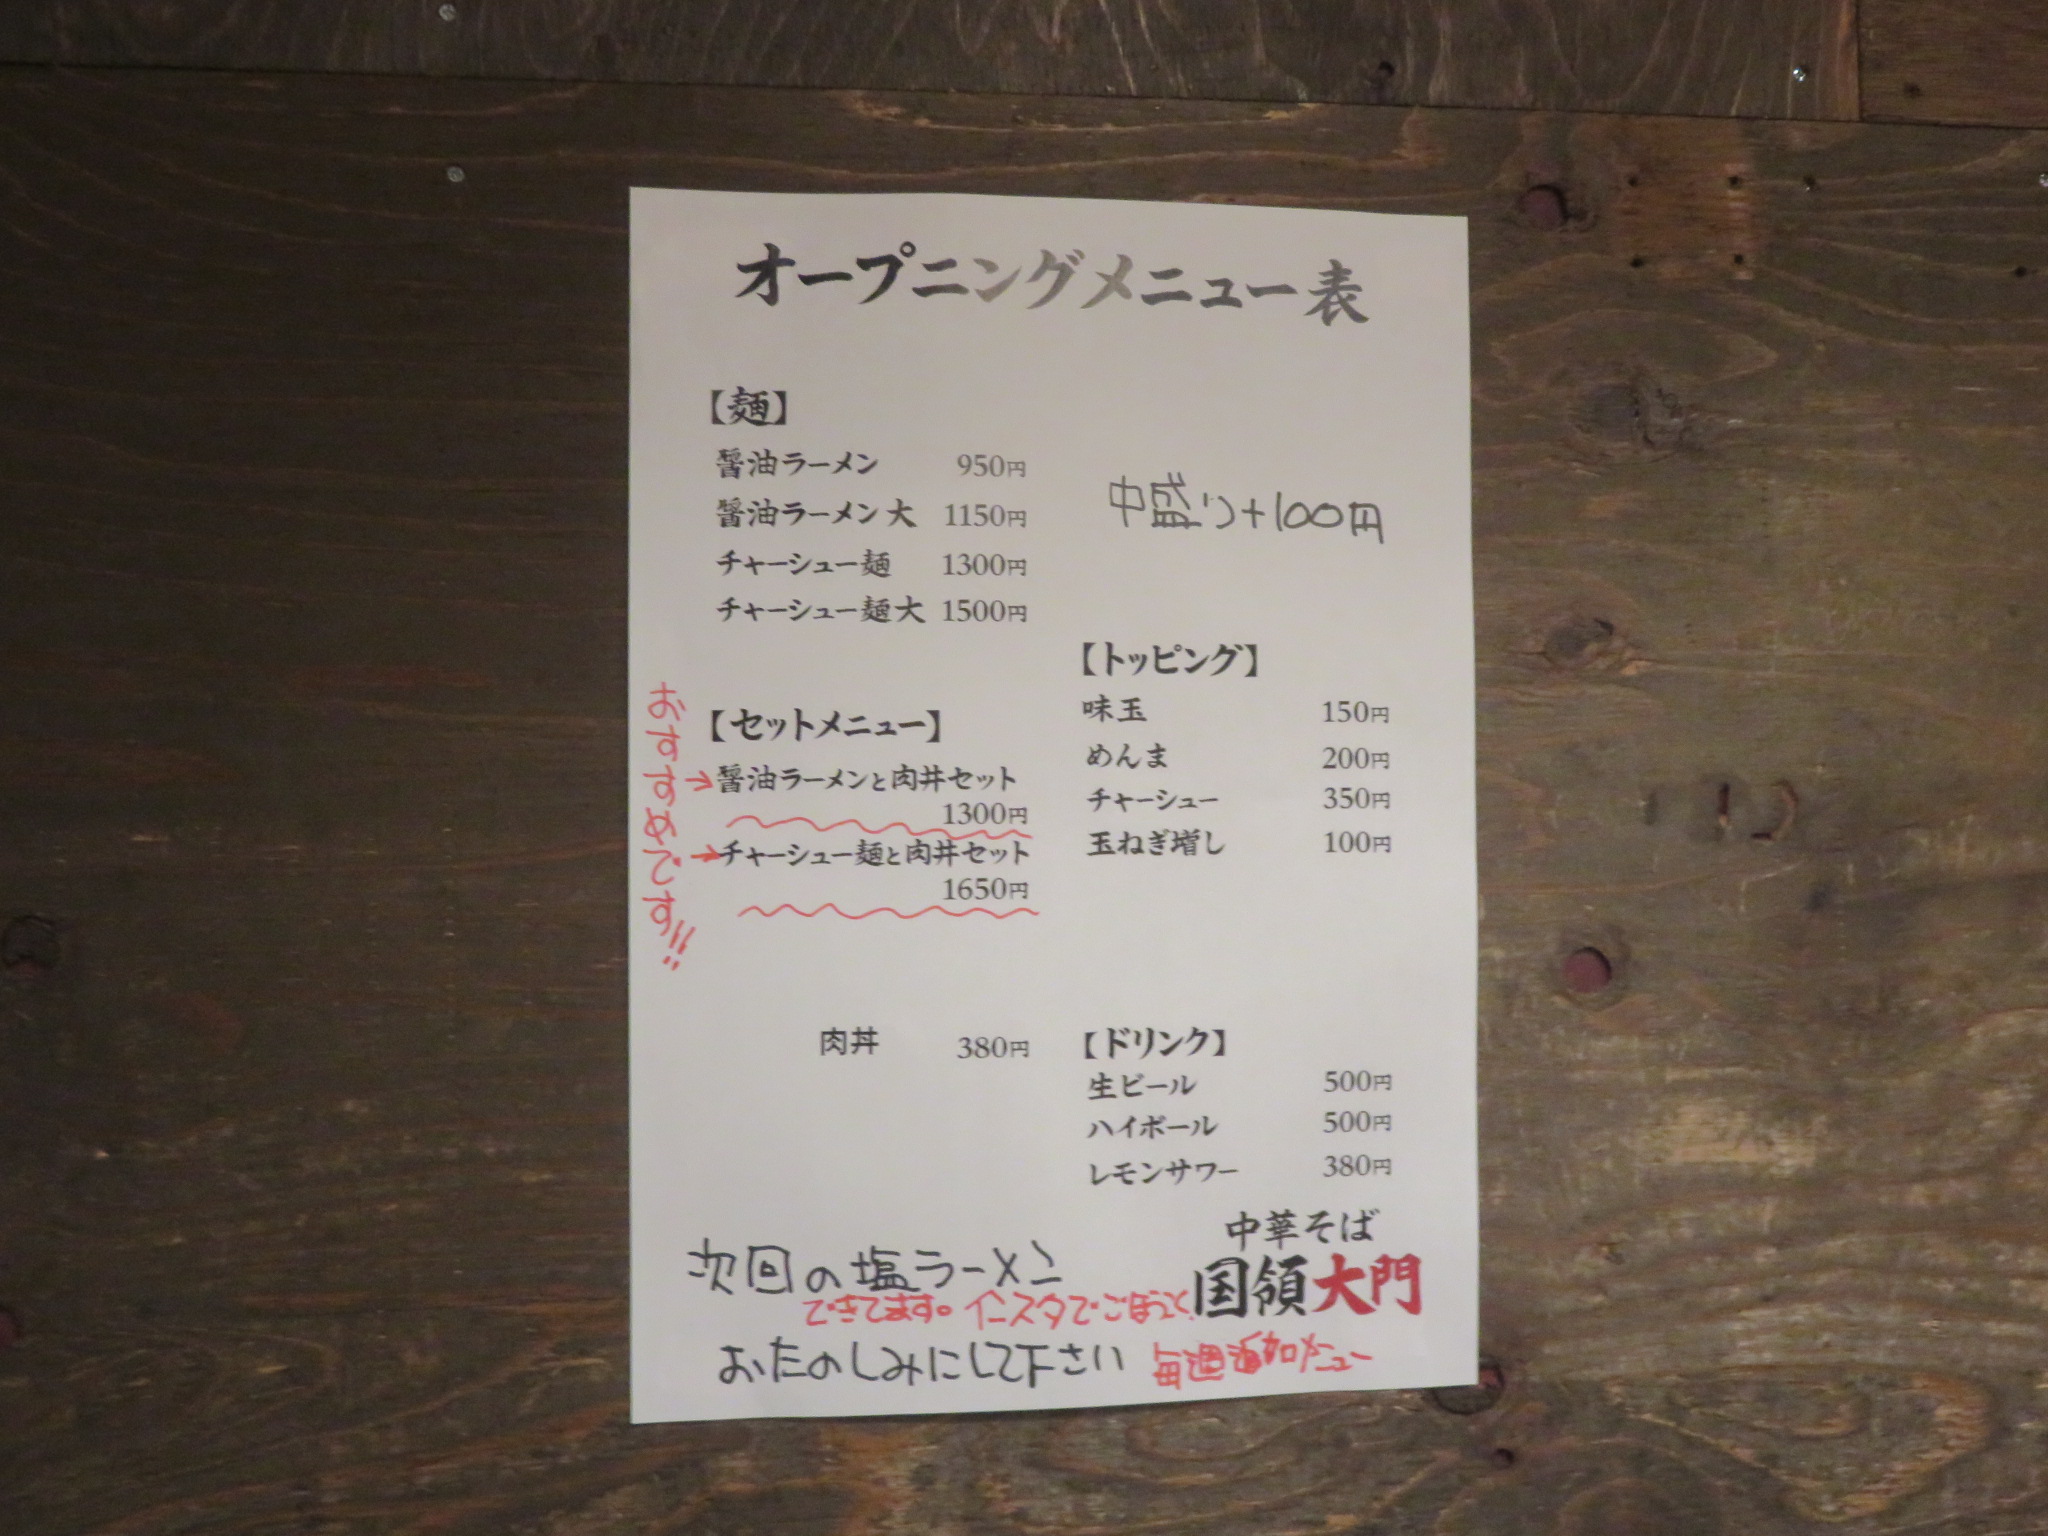 オープニングメニュー表
【麺】
醤油ラーメン 950円
醤油ラーメン大 1150円
チャーシュー麺 1300円
チャーシュー麺大 1500円
中盛り+100円
おすすめです!!
【セットメニュー】
→醤油ラーメンと肉丼セット
1300円
→チャーシュー麺と肉丼セット
1650円
肉丼 380円
【トッピング】
味玉 150円
めんま 200円
チャーシュー 350円
玉ねぎ増し 100円
【ドリンク】
生ビール 500円
ハイボール 500円
レモンサワー 380円
中華そば
国領大門
次回の塩ラーメン
できてます。インスタで
おたのしみにして下さい
毎週追加メニュー